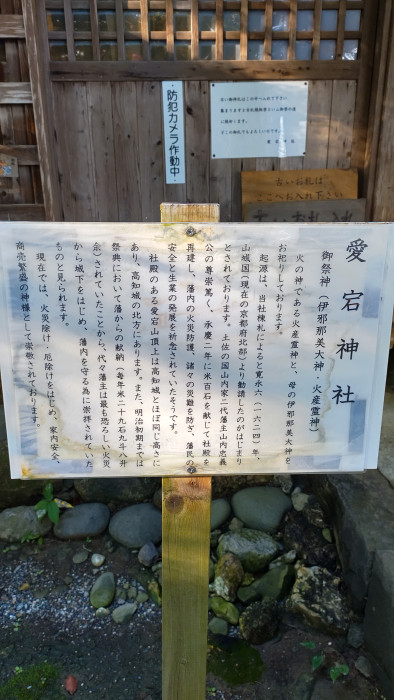 防犯カメラ作動中
古いお札は
ここへお入れ下さい
愛宕神社
御祭神（伊那那美大神、火産霊神）
火の神である火産霊神と、母の伊那那美大神を
お祀りしております。
起源は、当社棟札によると寛永六（一六二四）年、
山城国（現在の京都府北部）より勧請したのがはじまり
とされております。土佐の国山内家二代藩主山内忠義
公の尊崇篤く、承慶二年に米百石を献じて社殿を
再建し、藩内の火災防護、諸々の災難を防ぎ、藩民の
安全と生業の発展を祈念されていたそうです。
社殿のある愛宕山頂上は高知城とほぼ同じ高さに
あり、高知城の北方にあります。また、明治初期までは
祭典において藩からの献納（毎年米二十九石九斗八升
余）されていたことから、代々藩主は最も恐ろしい火災
から城下をはじめ、藩内を守る為に崇拝されていた
ものと見られます。
現在では、火災除け・厄除けをはじめ、家内安全、
商売繁盛の神様として崇敬されております。